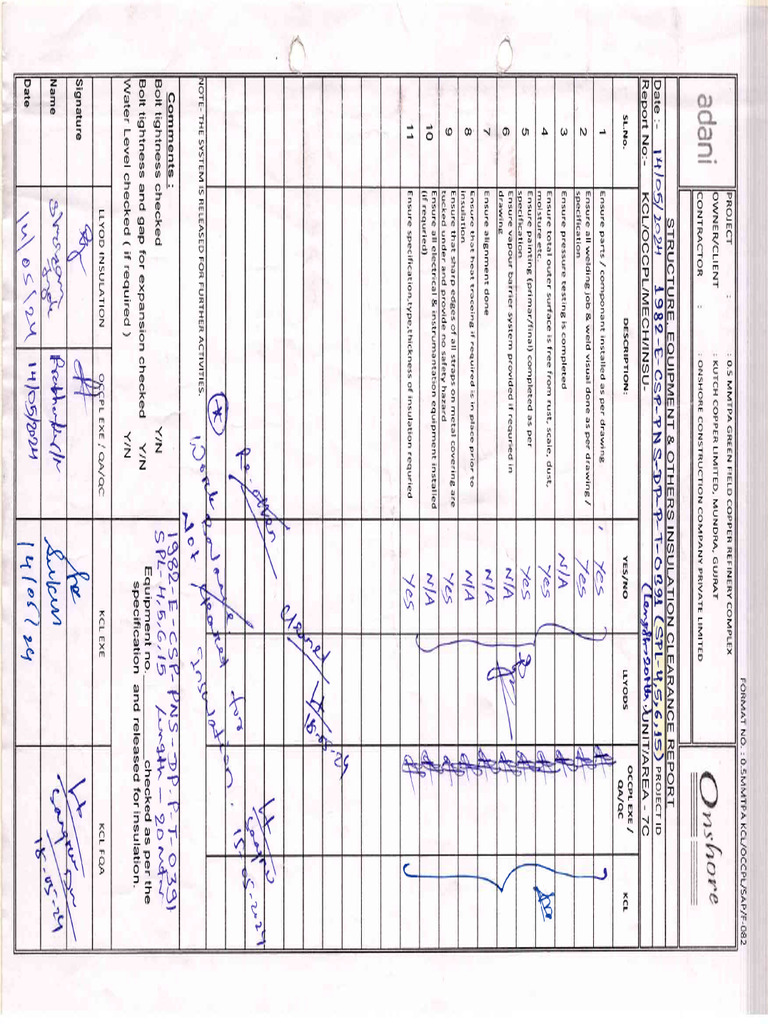 FORMAT NO. : 0.5MMTPA KCL/OCCPL/SAP/F-082
adani
PROJECT : : 0.5 MMTPA GREEN FIELD COPPER REFINERY COMPLEX
OWNER/CLIENT : KUTCH COPPER LIMITED, MUNDRA, GUJRAT
CONTRACTOR : : ONSHORE CONSTRUCTION COMPANY PRIVATE LIMITED
Onshore
STRUCTURE, EQUIPMENT & OTHERS INSULATION CLEARANCE REPORT
Date :- 14/05/2024 1982-E-CSP-PNS-DP-P-T-0391 (SPL-4,5,6,15) PROJECT ID
Report No:- KCL/OCCPL/MECH/INSU- (Length-20Mtr) UNIT/AREA - 7C
SL.No. DESCRIPTION: YES/NO LLYODS OCCPL EXE / QA/QC KCL
1 Ensure parts / componant installed as per drawing Yes
2 Ensure all welding job & weld visual done as per drawing / specification Yes
3 Ensure pressure testing is completed N/A
4 Ensure total outer surface is free from rust, scale, dust, moisture etc. Yes
5 Ensure painting (primar/final) completed as per specification Yes
6 Ensure vapour barrier system provided if requried in drawing N/A
7 Ensure alignment done Yes
8 Ensure that heat traceing if required is in place prior to insulation N/A
9 Ensure that sharp edges of all straps on metal covering are tucked under and provide no safety hazard Yes
10 Ensure all electrical & instrumantation equipment installed (if requried) N/A
11 Ensure specification,type,thickness of insulation requried Yes
cleared
18-05-24
* Work
Not cleared for insulation.
15-05-2024
NOTE- THE SYSTEM IS RELEASED FOR FURTHER ACTIVITIES.
Comments :
Bolt tightness checked Y/N
Bolt tightness and gap for expansion checked Y/N
Water Level checked ( if required ) Y/N
1982-E-CSP-PNS-DP-P-T-0391
SPL-4,5,6,15 Length - 20Mtr
Equipment no. checked as per the
specification and released for insulation.
LLYOD INSULATION OCCPL EXE / QA/QC KCL EXE KCL FQA
Signature
Name
Date 14/05/24 14/05/2024 14/05/24 18-05-24